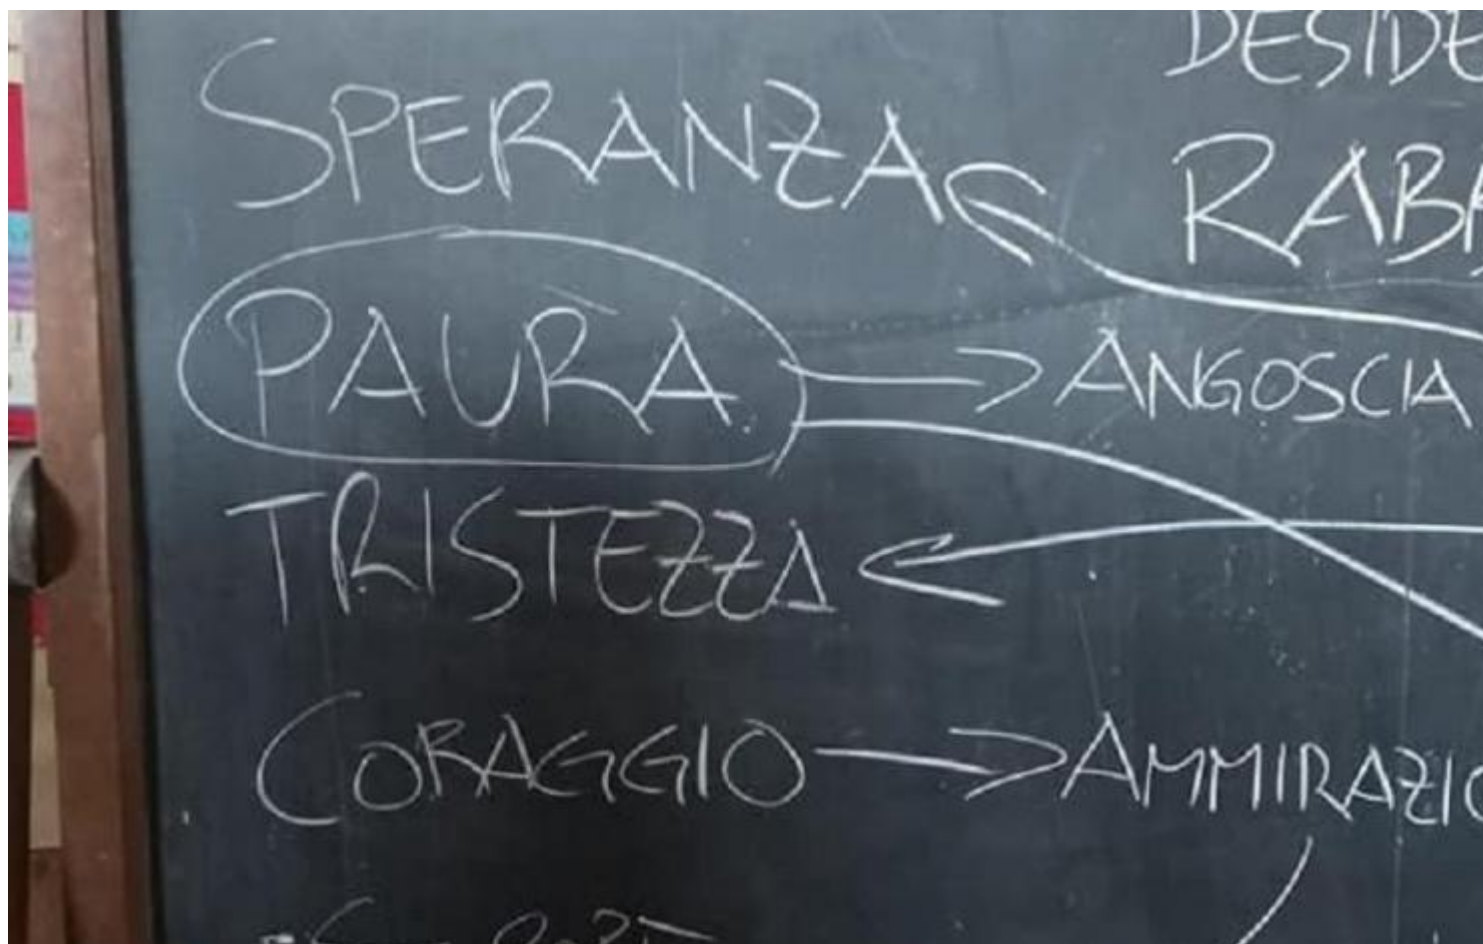 DESIDE
SPERANZA
RABB
PAURA → ANGOSCIA
TRISTEZZA
CORAGGIO → AMMIRAZIO